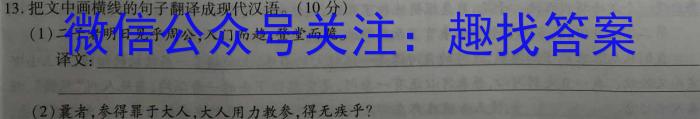 13.把文中画横线的句子翻译成现代汉语。(10分)
(1)二子者明日见乎周公,入门而趋,登堂而跪。
微信公众号关注：趣找答案
译文:
(2)曩者,参得罪于大人,大人用力教参,得无疾乎?